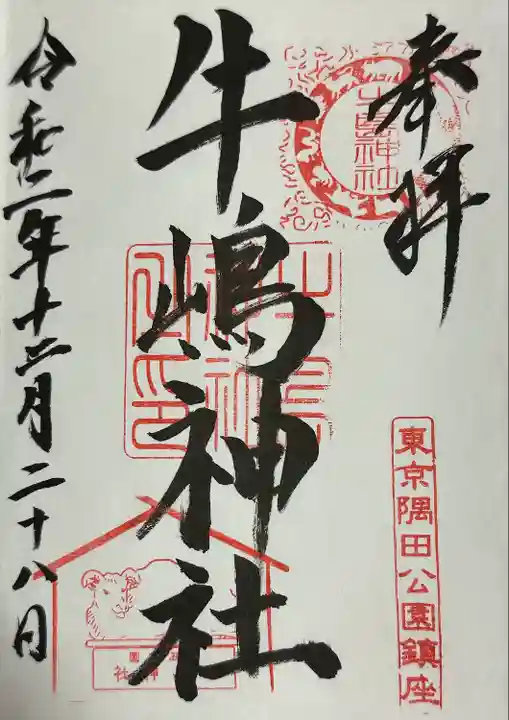 奉拝
牛嶋神社
東京隅田公園鎮座
牛嶋神社
令和二年十二月二十八日